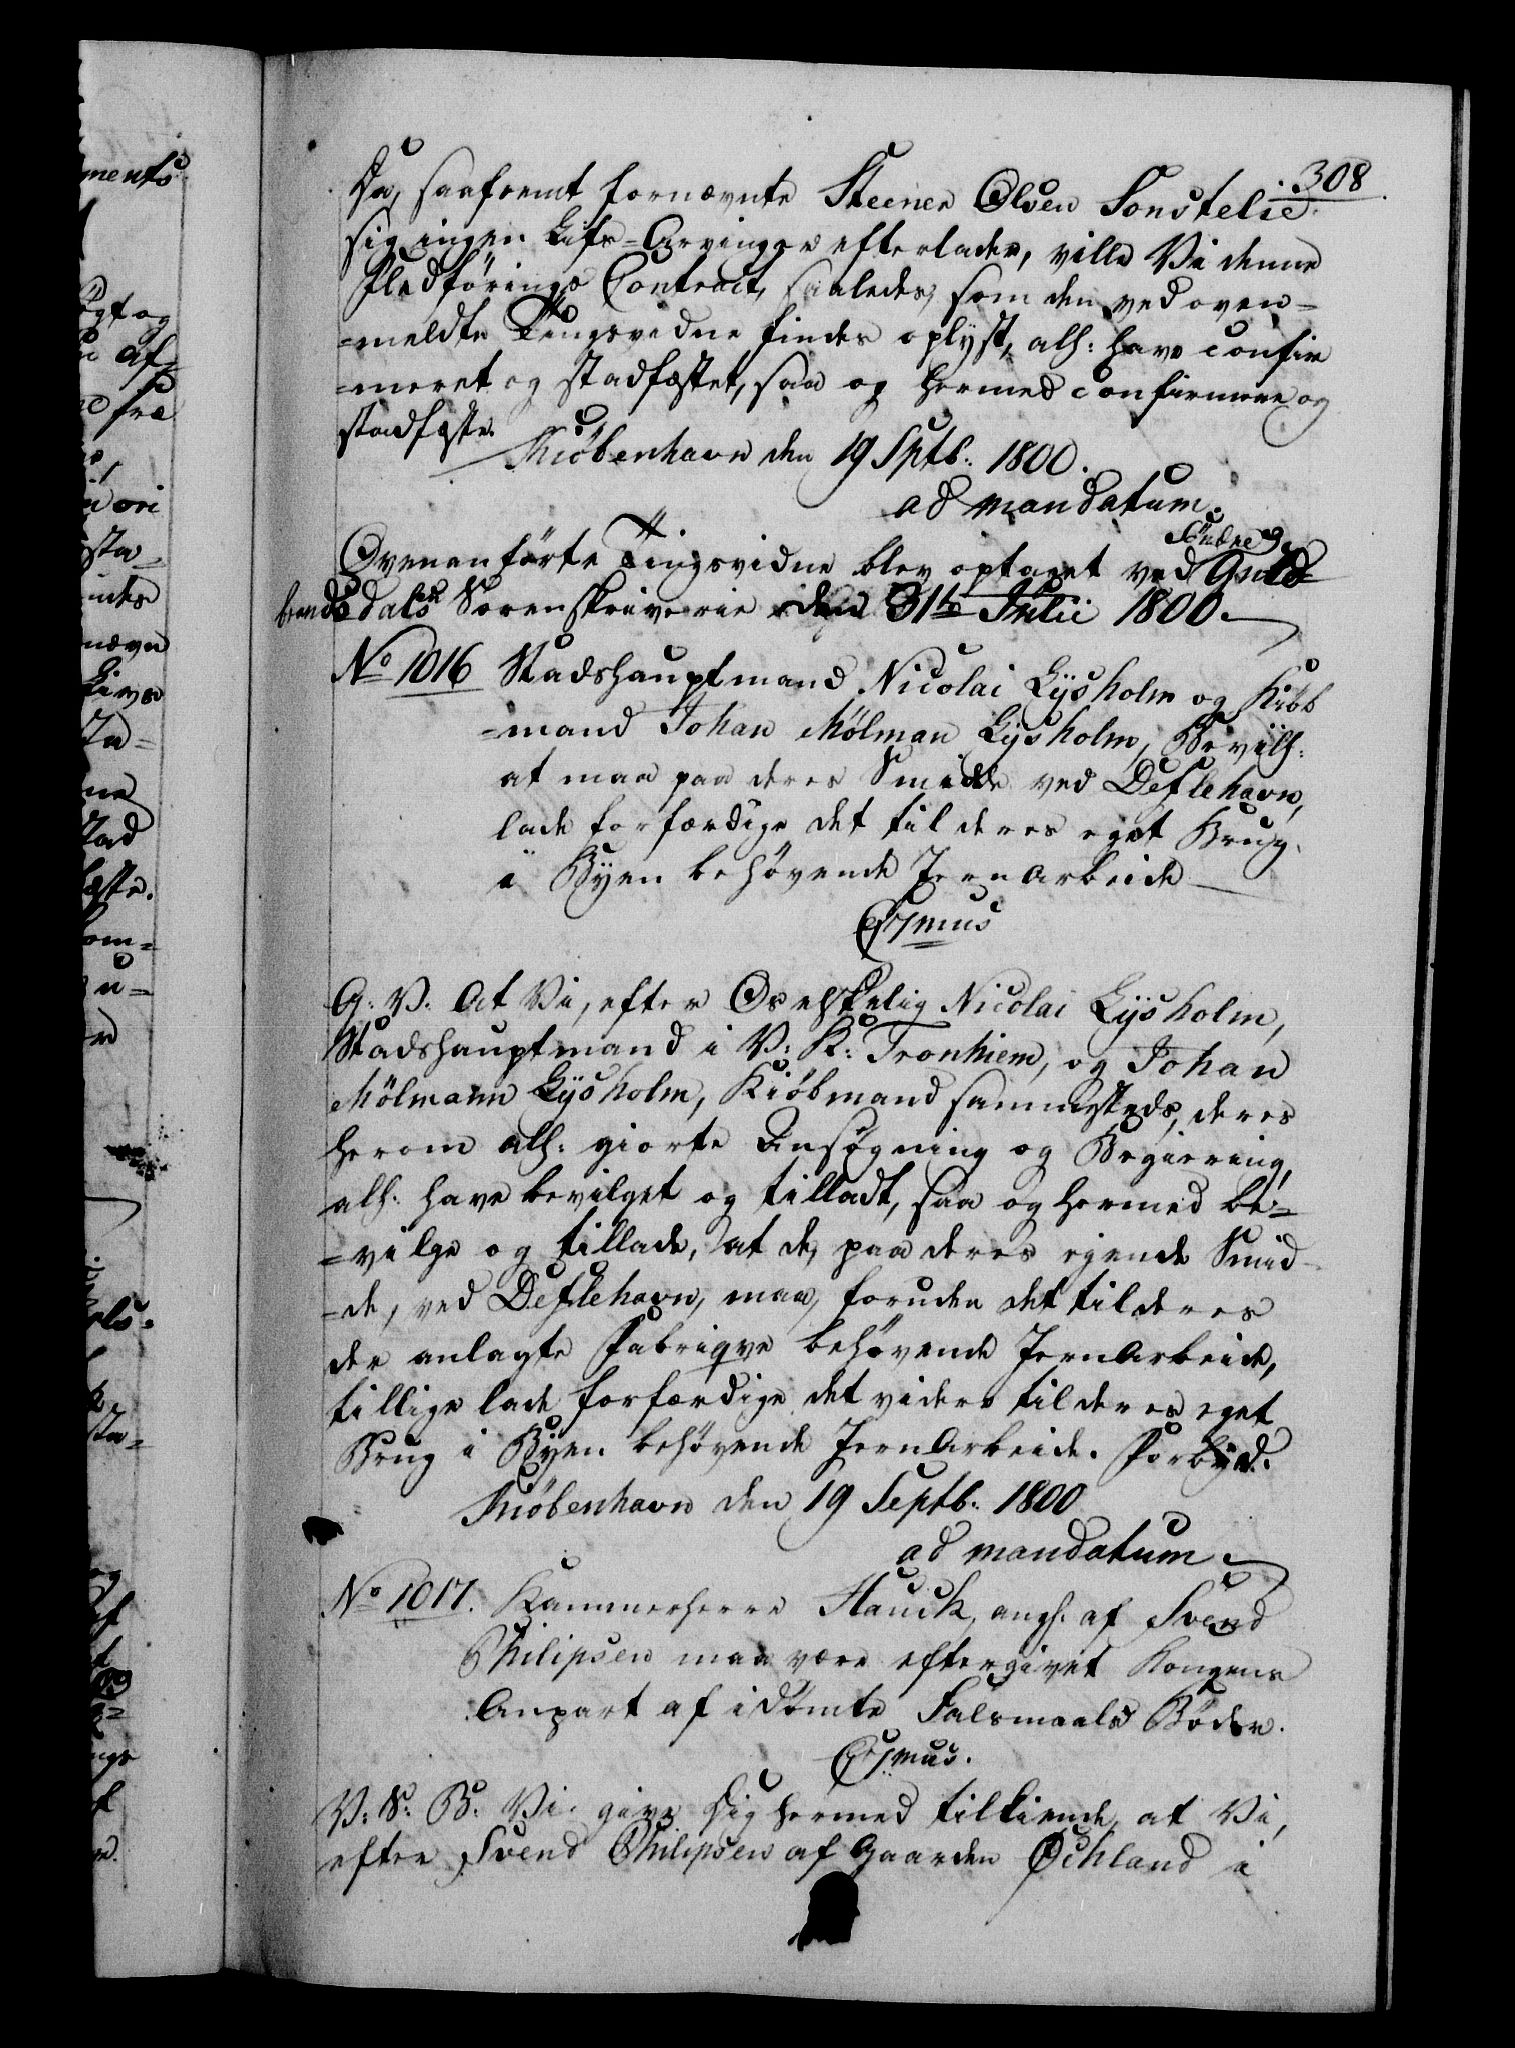 308
Da, saafremt fornævnte Steener Olsen Sonstelie
sig ingen Lifs-Arvinger efterlader, ville Vi denne
Fledførings Contract, saaledes, som den ved oven-
=meldte Tingsvidne findes oplyst, allr: have confir
=meret og stadfæstet, saa og hermed confirmere og
stadfæste.
Kiøbenhavn den 19 Sptb: 1800.
ad mandatum.
Søndre
Ovenanførte Tingsvidne blev optaget ved Guld=
brandsdalens Sorenskriverie den 31te Julii 1800.
No 1016 Stadshauptmand Nicolai Lysholm og Kiøb
=mand Johan Mølman Lysholm, Bevilh:
at maa paa deres Smidde ved Deflehavn,
lade forfærdige det til deres eget Brug
i Byen behøvende JernArbeide
C 7mus
G: V: At Vi, efter Os elskelig Nicolai Lysholm,
Stadshauptmand i V: K: Tronhiem, og Johan
Mølmann Lysholm, Kiøbmand sammesteds, deres
herom allr: giorte Ansøgning og Begiering,
allr: have bevilget og tilladt, saa og hermed be-
=vilge og tillade, at de, paa deres egende Smid-
=de, ved Deflehavn, maa, foruden det til deres
der anlagte Fabriqve behøvende JernArbeide,
tillige lade forfærdige det videre til deres eget
Brug i Byen behøvende JernArbeide. Forbyd:
Kiøbenhavn den 19 Septb: 1800
ad mandatum.
No 1017. Kammerherre Hauch, angl: af Svend
Philipsen maa være eftergivet Kongens
Anpart af idømte Falsmaals Bøder.
C 7mus.
V: S: B: Vi give Dig hermed tilkiende, at Vi,
efter Svend Philipsen af Gaarden Øchland i